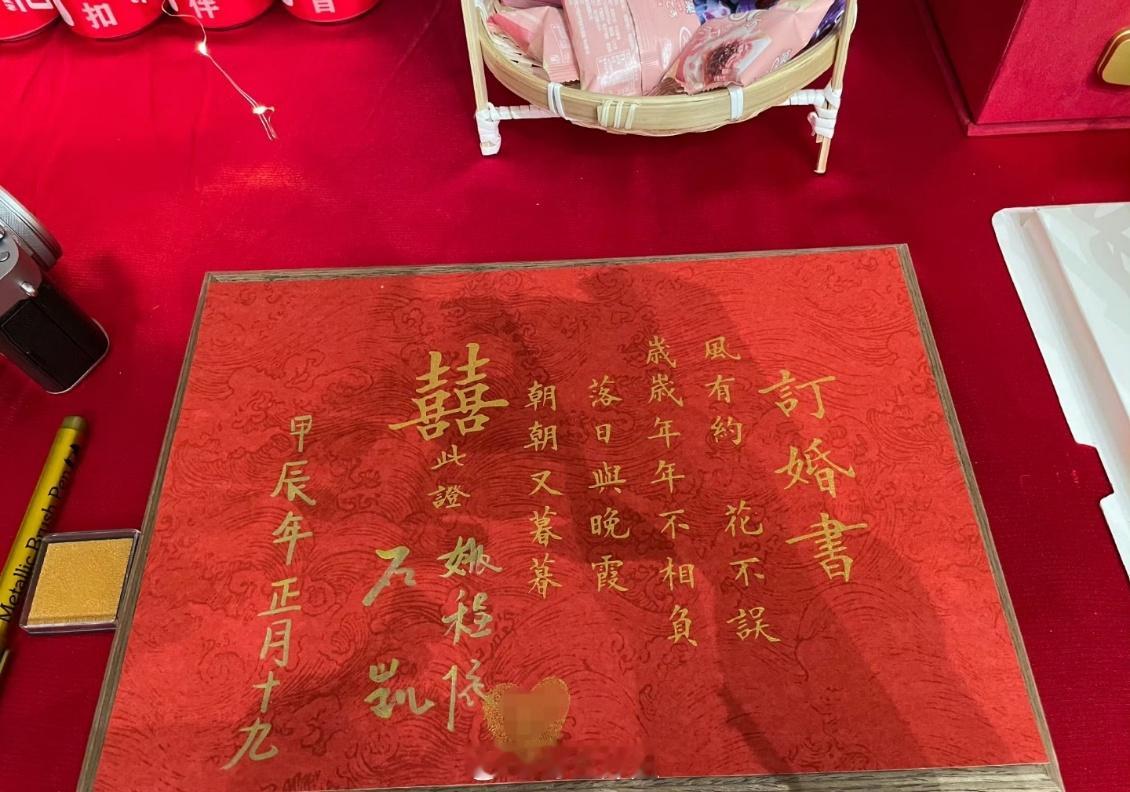 訂婚書
風有約 花不誤
歲歲年年不相負
落日與晚霞
朝朝又暮暮
囍
此證
程
石凱
甲辰年正月十九
Metallic Brush Pen
扣
伴